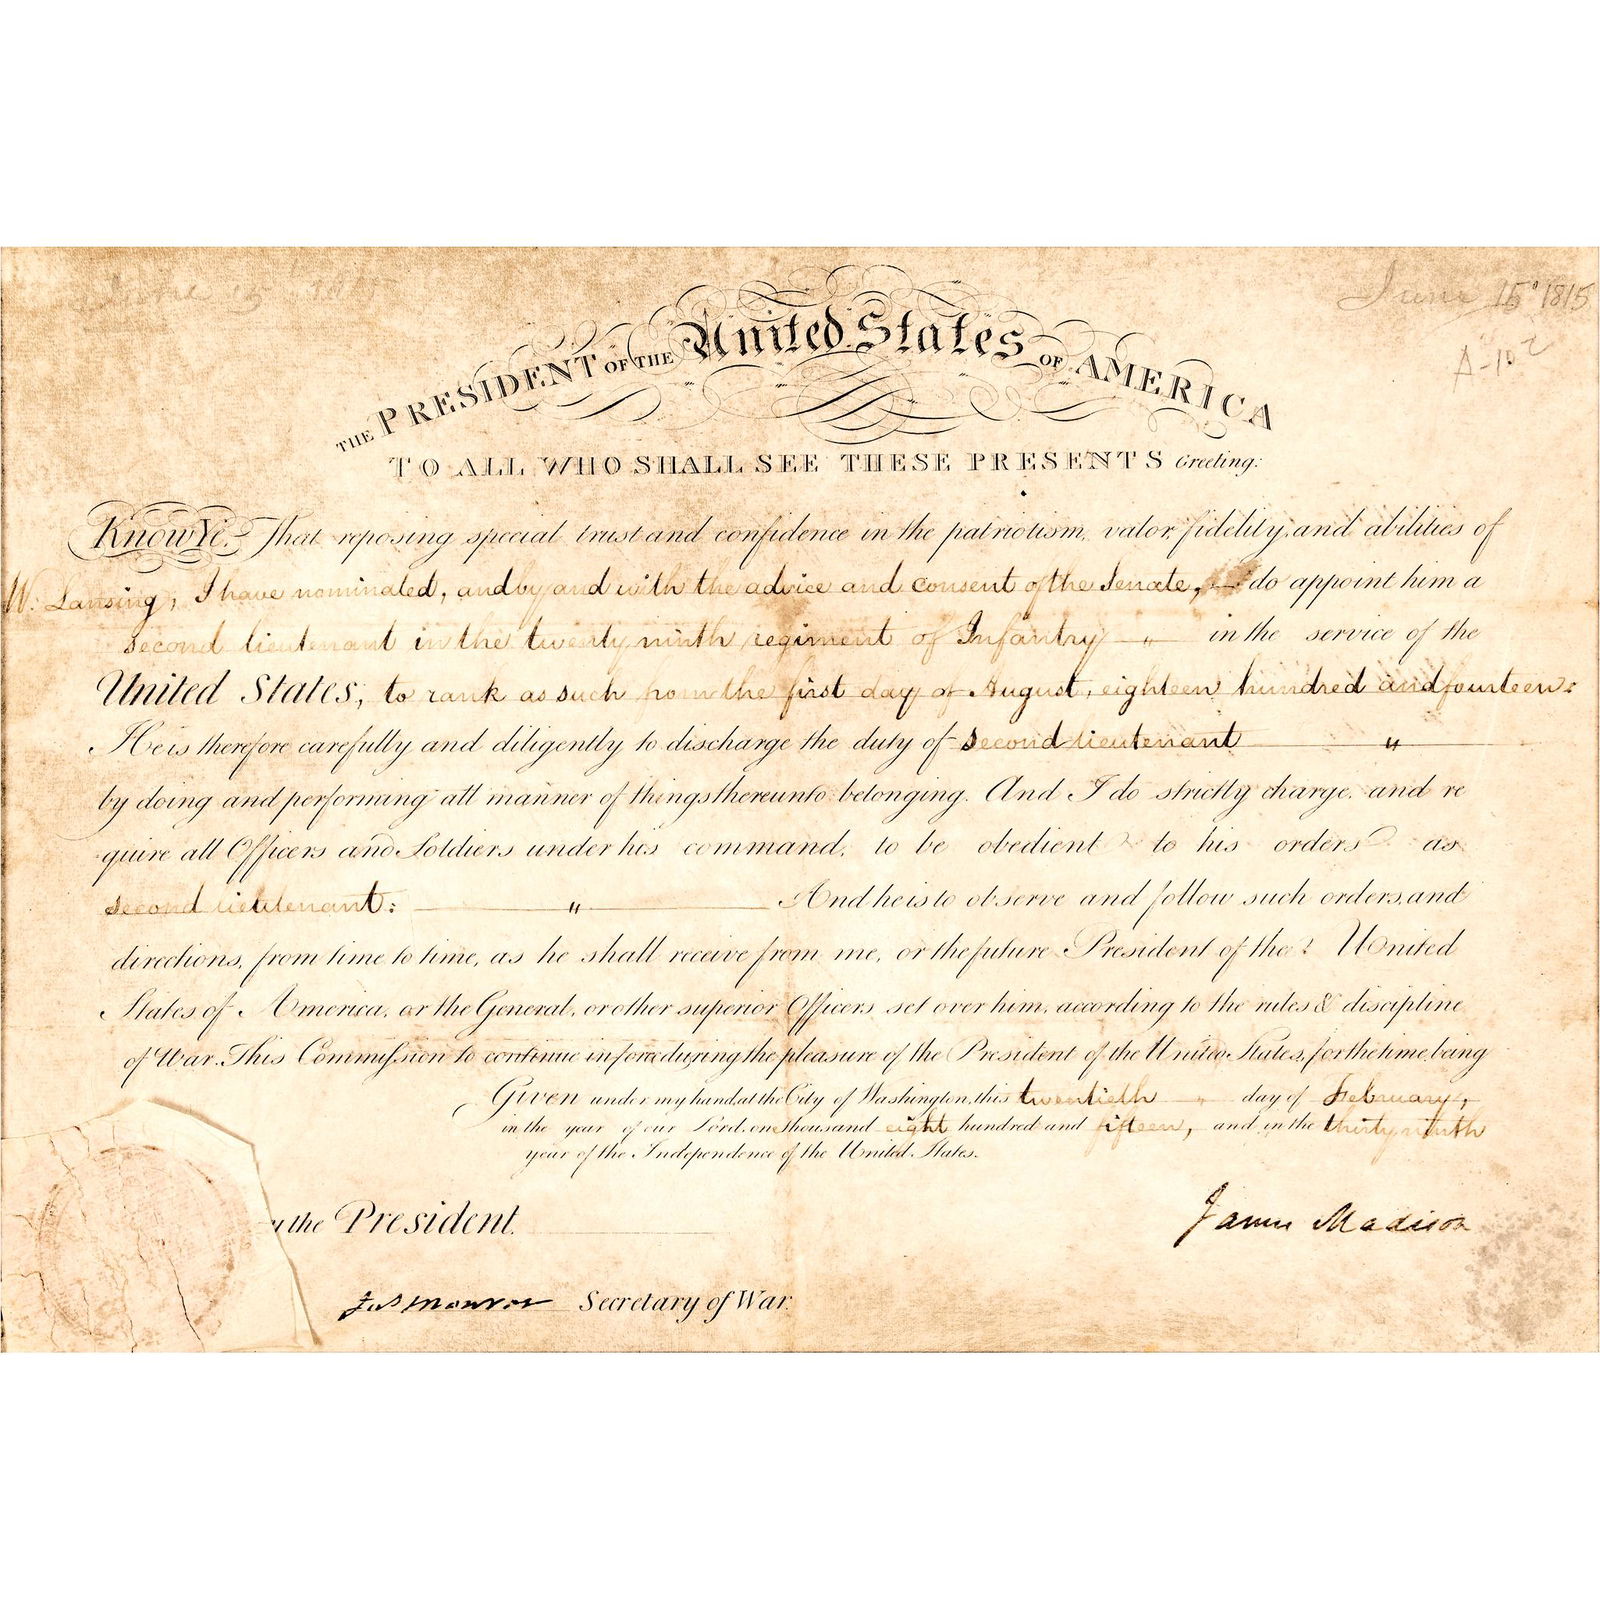 June 15 1815
THE PRESIDENT OF THE United States OF AMERICA
TO ALL WHO SHALL SEE THESE PRESENTS Greeting:
Know Ye, That reposing special trust and confidence in the patriotism, valor, fidelity, and abilities of
W. Lansing, I have nominated, and by and with the advice and consent of the Senate, do appoint him a
second lieutenant in the twenty ninth regiment of Infantry " in the service of the
United States, to rank as such from the first day of August, eighteen hundred and fourteen:
He is therefore carefully and diligently to discharge the duty of second lieutenant "
by doing and performing all manner of things thereunto belonging. And I do strictly charge, and re
quire all Officers and Soldiers under his command, to be obedient to his orders as
second lieutenant: " And he is to observe and follow such orders, and
directions, from time to time, as he shall receive from me, or the future President of the United
States of America, or the General, or other superior Officers set over him, according to the rules & discipline
of War. This Commission to continue in force during the pleasure of the President of the United States, for the time being
Given under my hand, at the City of Washington, this twentieth " day of February,
in the year of our Lord, one thousand eight hundred and fifteen, and in the thirty ninth
year of the Independence of the United States.
y the President.
James Madison
Jas Monroe Secretary of War.